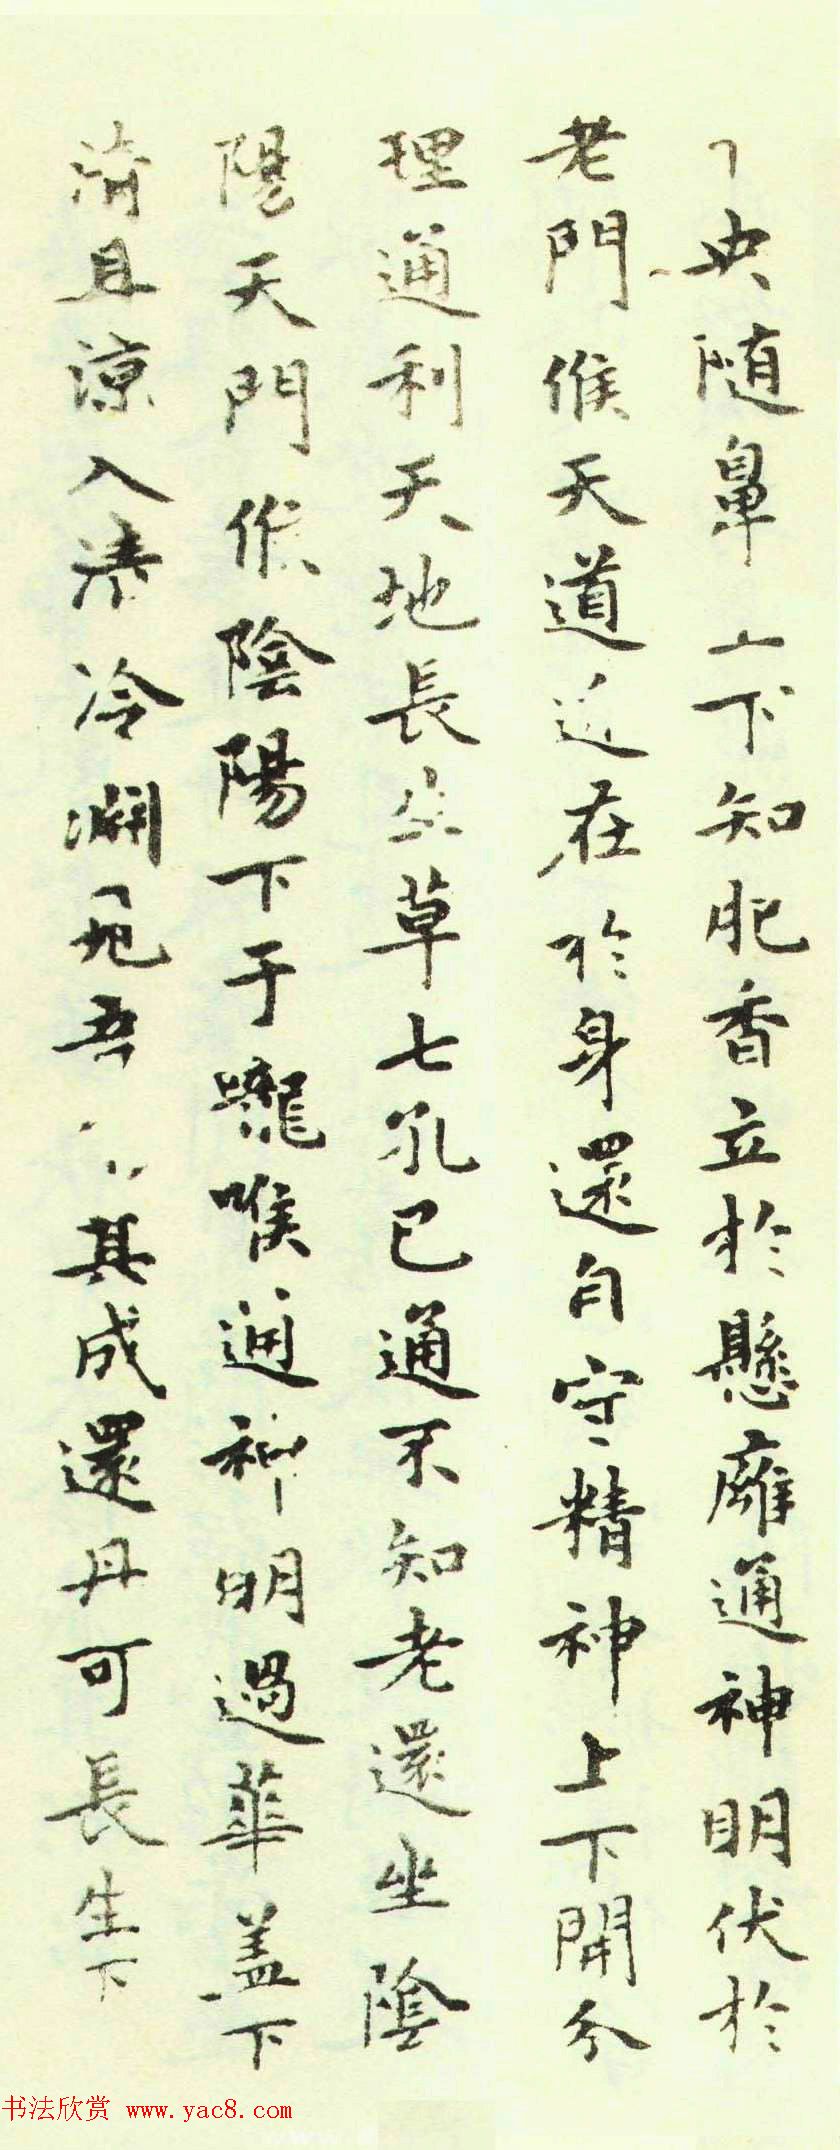 央随鼻上下知肥香立於懸癰通神明伏於
老門候天道近在於身還自守精神上下開分
理通利天地長生草七孔已通不知老還坐陰
陽天門候陰陽下于嚨喉通神明過華盖下
清且涼入清冷淵見吾其成還丹可長生下
书法欣赏 www.yac8.com